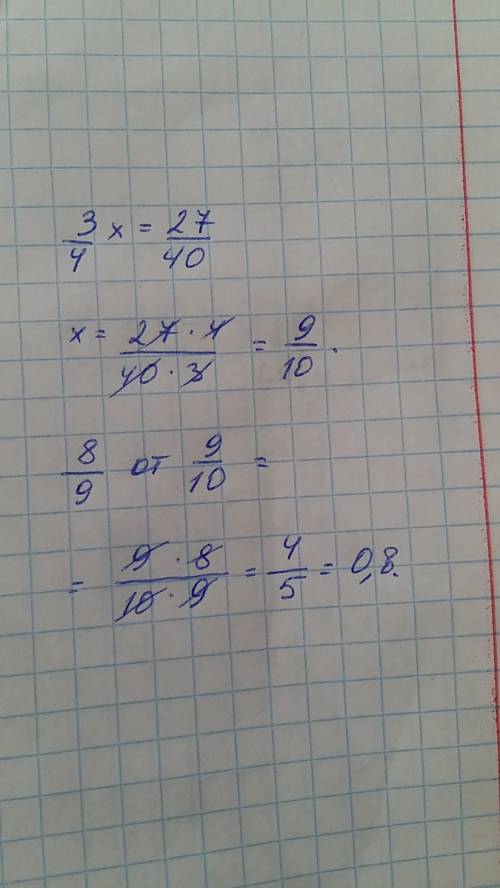 3/4 x = 27/40
x = 27 · 4 / 40 · 3 = 9/10 .
8/9 от 9/10 =
= 9 · 8 / 10 · 9 = 4/5 = 0,8.